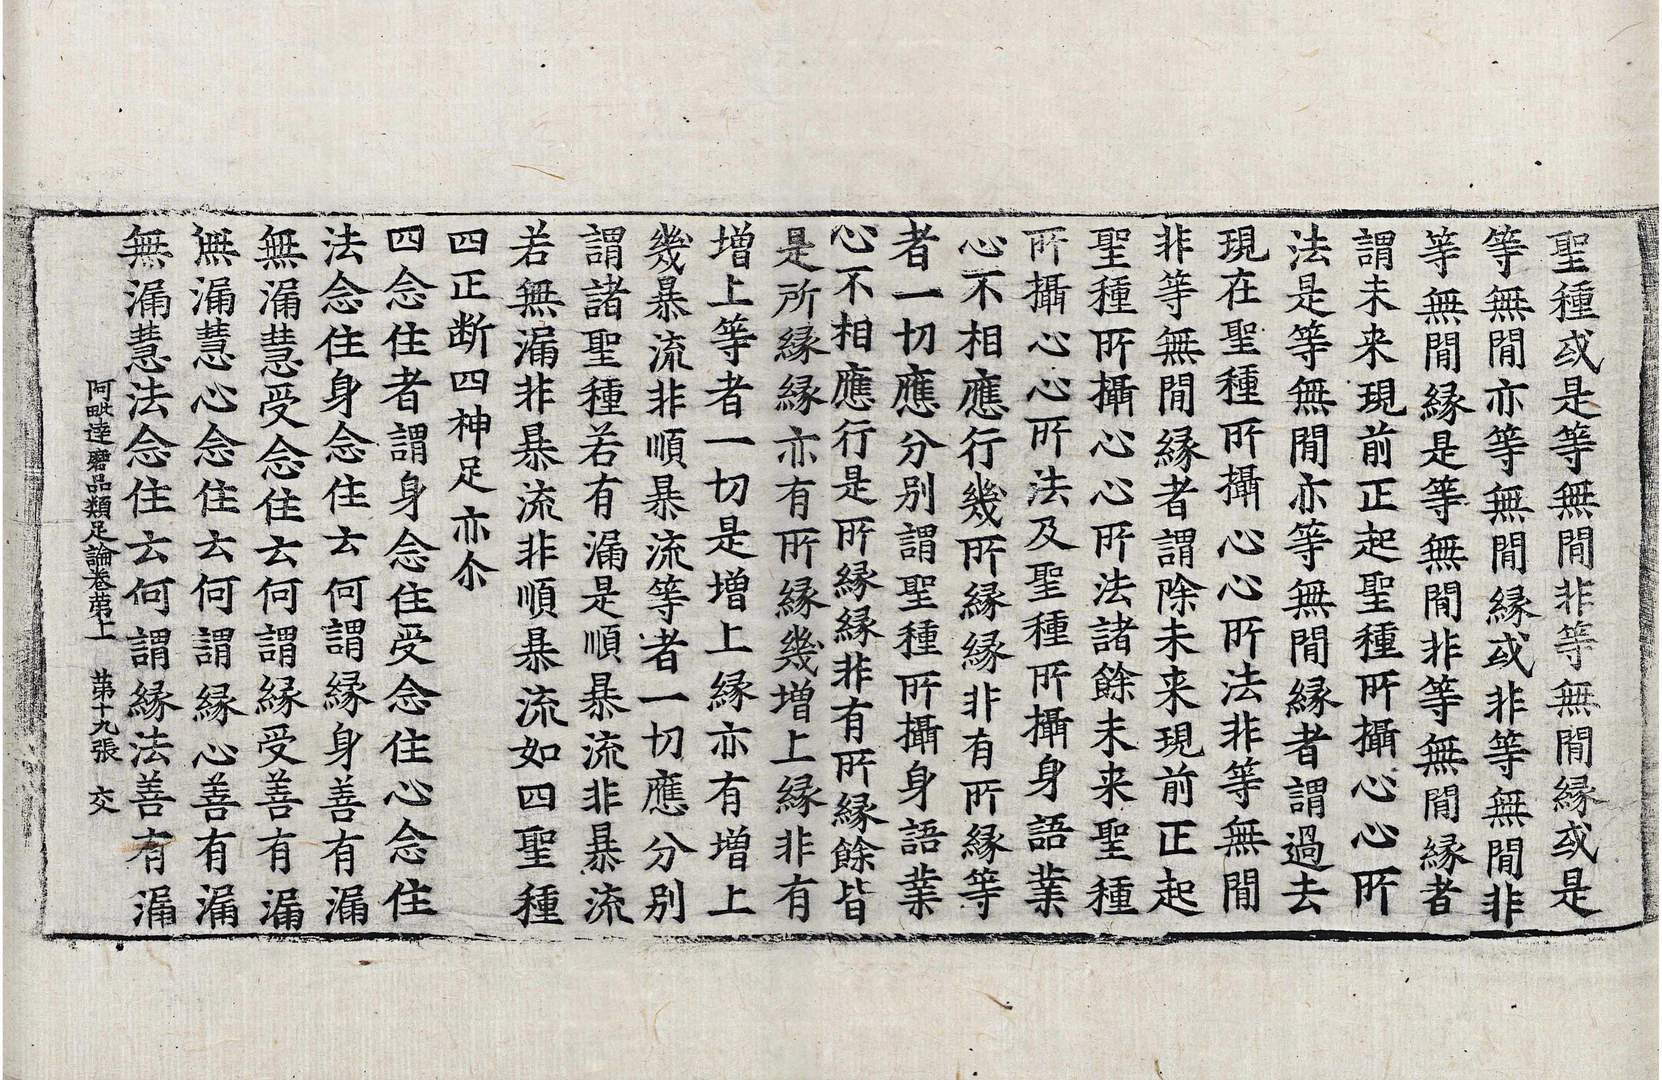 聖種或是等無間非等無間縁或是
等無間亦等無間縁或非等無間非
等無間縁是等無間非等無間縁者
謂未来現前正起聖種所攝心心所
法是等無間亦等無間縁者謂過去
現在聖種所攝心心所法非等無間
非等無間縁者謂除未来現前正起
聖種所攝心心所法諸餘未来聖種
所攝心心所法及聖種所攝身語業
心不相應行幾所縁縁非有所縁等
者一切應分別謂聖種所攝身語業
心不相應行是所縁縁非有所縁餘皆
是所縁縁亦有所縁幾增上縁非有
增上等者一切是增上縁亦有增上
幾暴流非順暴流等者一切應分別
謂諸聖種若有漏是順暴流非暴流
若無漏非暴流非順暴流如四聖種
四正断四神足亦尒
四念住者謂身念住受念住心念住
法念住身念住云何謂縁身善有漏
無漏慧受念住云何謂縁受善有漏
無漏慧心念住云何謂縁心善有漏
無漏慧法念住云何謂縁法善有漏
阿毗達磨品類足論卷第十一 第十九張 交